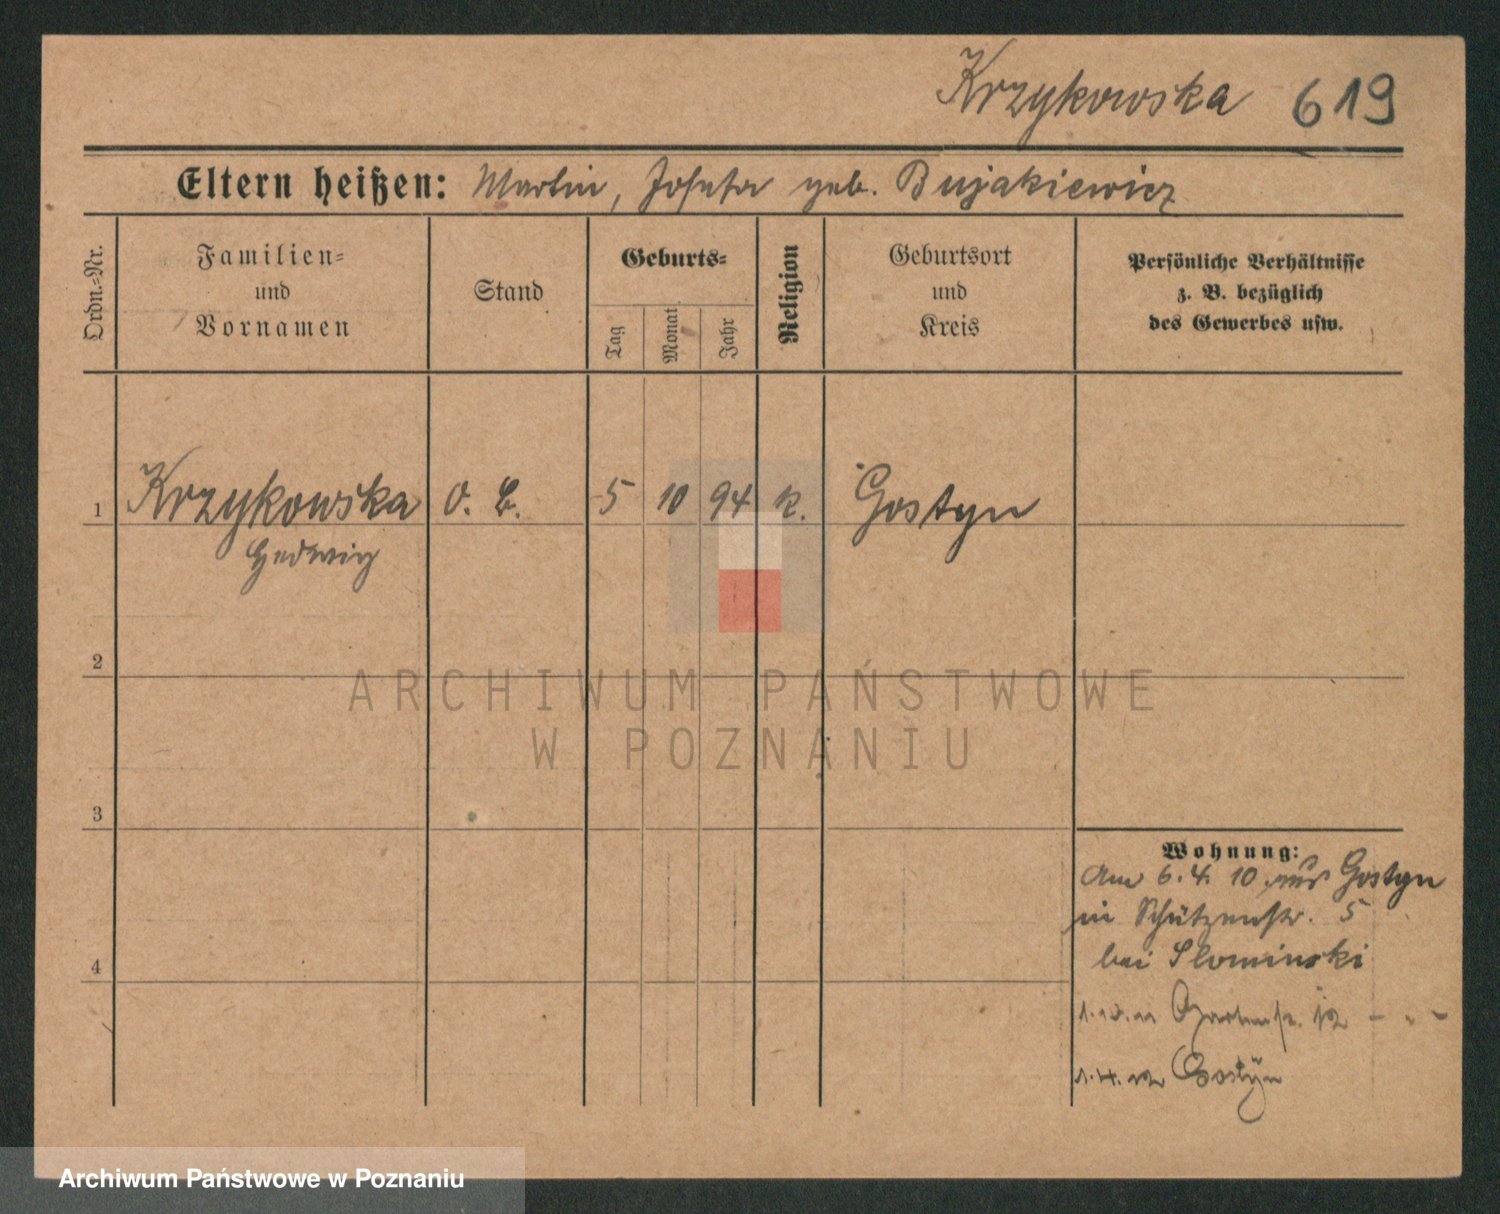 Krzykowska 619
Eltern heißen: Martin, Josefa geb. Bujakiewicz
Ordn.-Nr.
Familien-
und
Vornamen
Stand
Geburts-
Tag
Monat
Jahr
Religion
Geburtsort
und
Kreis
Persönliche Verhältnisse
z. B. bezüglich
des Gewerbes usw.
1 Krzykowska O. B. 5 10 94 k. Gostyn
Hedwig
2
3
4
Wohnung:
Am 6.4.10 aus Gostyn
in Schützenstr. 5
bei Slominski
1.10.11 Gartenstr. 12 - " -
1.4.12 Gostÿn
ARCHIWUM PAŃSTWOWE
W POZNANIU
Archiwum Państwowe w Poznaniu